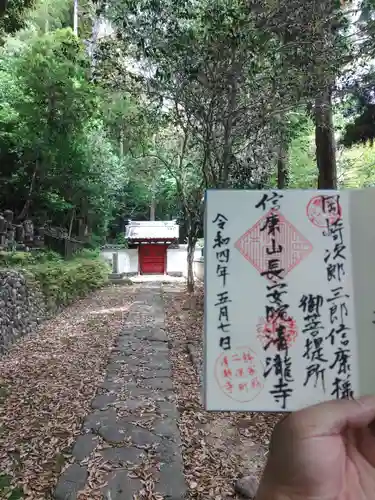 岡崎次郎三郎信康様
御菩提所
信康山長安院清瀧寺
令和四年五月七日